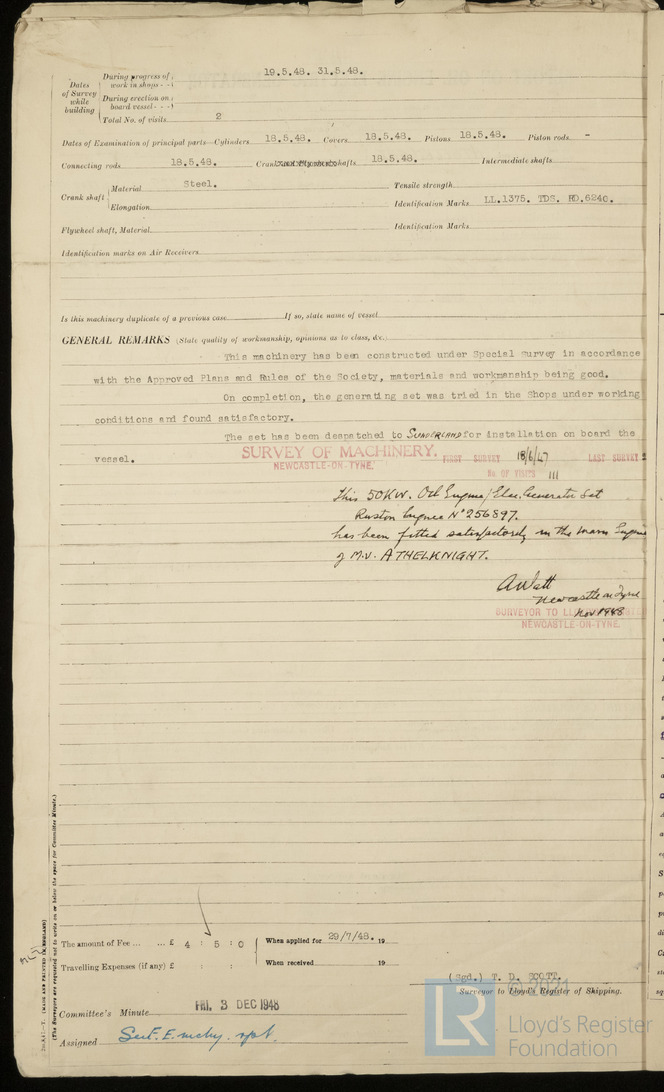 During progress of work in shops - - 19.5.48. 31.5.48.
Dates of Survey while building
During erection on board vessel - - -
Total No. of visits 2
Dates of Examination of principal parts—Cylinders 18.5.48. Covers 18.5.48. Pistons 18.5.48. Piston rods -
Connecting rods 18.5.48. Crank shafts 18.5.48. Intermediate shafts
Crank shaft Material Steel. Tensile strength
Elongation Identification Marks LL.1375. TDS. RO.6240.
Flywheel shaft, Material Identification Marks
Identification marks on Air Receivers
Is this machinery duplicate of a previous case If so, state name of vessel
GENERAL REMARKS (State quality of workmanship, opinions as to class, &c.)
This machinery has been constructed under Special Survey in accordance
with the Approved Plans and Rules of the Society, materials and workmanship being good.
On completion, the generating set was tried in the Shops under working
conditions and found satisfactory.
The set has been despatched to SUNDERLAND for installation on board the
vessel.
SURVEY OF MACHINERY. FIRST SURVEY 18/6/47 LAST SURVEY
NEWCASTLE-ON-TYNE. No. OF VISITS 111
This 50KW. Oil Engine/Elec. Generator Set
Ruston Engine No 256897.
has been fitted satisfactorily in the main Engine
of M.V. ATHELKNIGHT.
A Watt
Newcastle on Tyne
SURVEYOR TO Nov 1948
NEWCASTLE-ON-TYNE.
The amount of Fee ... ... £ 4 : 5 : 0 When applied for 29/7/48. 19
Travelling Expenses (if any) £ : : When received 19
(Sgd.) T. D. SCOTT.
Surveyor to Lloyd's Register of Shipping.
© 2021
Committee's Minute FRI. 3 DEC 1948
Assigned See F.E. mchy. rpt.
LR Lloyd's Register
Foundation
(MADE AND PRINTED IN ENGLAND)
(The Surveyors are requested not to write on or below the space for Committee Minute.)